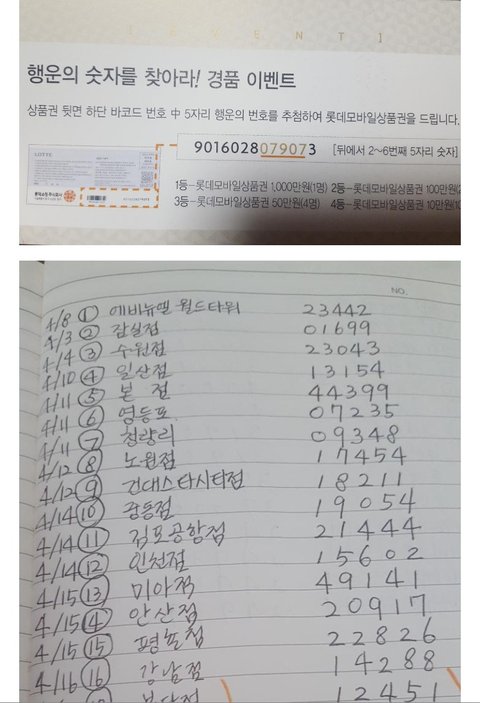 [ E V E N T ]
행운의 숫자를 찾아라! 경품 이벤트
상품권 뒷면 하단 바코드 번호 中 5자리 행운의 번호를 추첨하여 롯데모바일상품권을 드립니다.
LOTTE
9016028079073 [뒤에서 2~6번째 5자리 숫자]
1등-롯데모바일상품권 1,000만원(1명) 2등-롯데모바일상품권 100만원
3등-롯데모바일상품권 50만원(4명) 4등-롯데모바일상품권 10만원
NO.
4/8 ① 에비뉴엘 월드타워 23442
4/3 ② 잠실점 01699
4/4 ③ 수원점 23043
4/10 ④ 일산점 13154
4/11 ⑤ 본 점 44399
4/11 ⑥ 영등포 07235
4/11 ⑦ 청량리 09348
4/12 ⑧ 노원점 17454
4/12 ⑨ 건대스타시티점 18211
4/14 ⑩ 19054
4/14 ⑪ 김포공항점 21444
4/14 ⑫ 인천점 15602
4/15 ⑬ 미아점 49141
4/15 ⑭ 안산점 20917
4/15 ⑮ 평촌점 22826
4/16 ⑯ 강남점 14288
12451